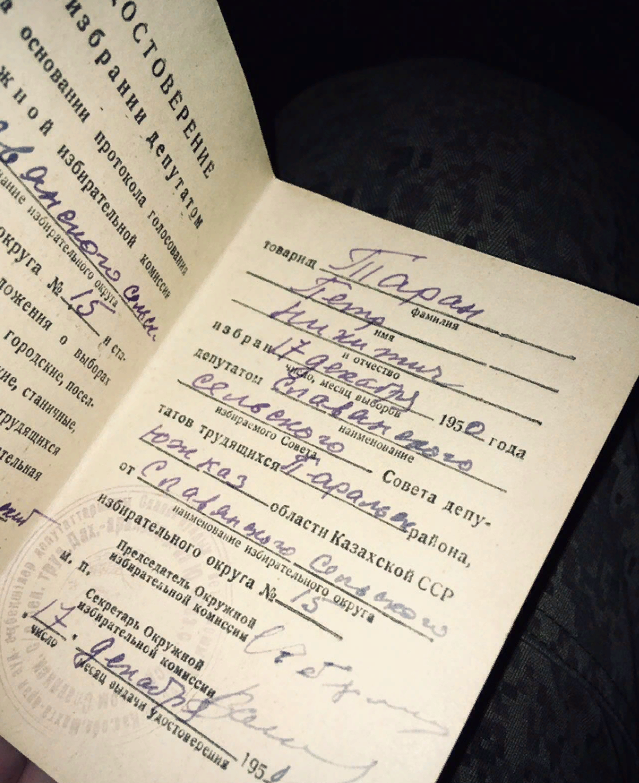 УДОСТОВЕРЕНИЕ
избрании депутатом
а основании протокола голосования
жной избирательной комиссии
авянского сельск
вание избирательного округа
округа № 15 и ста-
ложения о выборах
городские, посел-
кие, станичные,
трудящихся
ательная
товарищ Таран
фамилия
Петр
имя
Никитич
и отчество
избран 17 декабря 1950 года
число, месяц выборов
депутатом Славянского
наименование
сельского Совета депу-
избираемого Совета
татов трудящихся района,
Юж каз области Казахской ССР
от Славянского сельского
наименование избирательного округа
избирательного округа № 15
Председатель Окружной
избирательной комиссии
м. п.
Секретарь Окружной
избирательной комиссии
17 декабря 1950
число месяц выдачи удостоверения